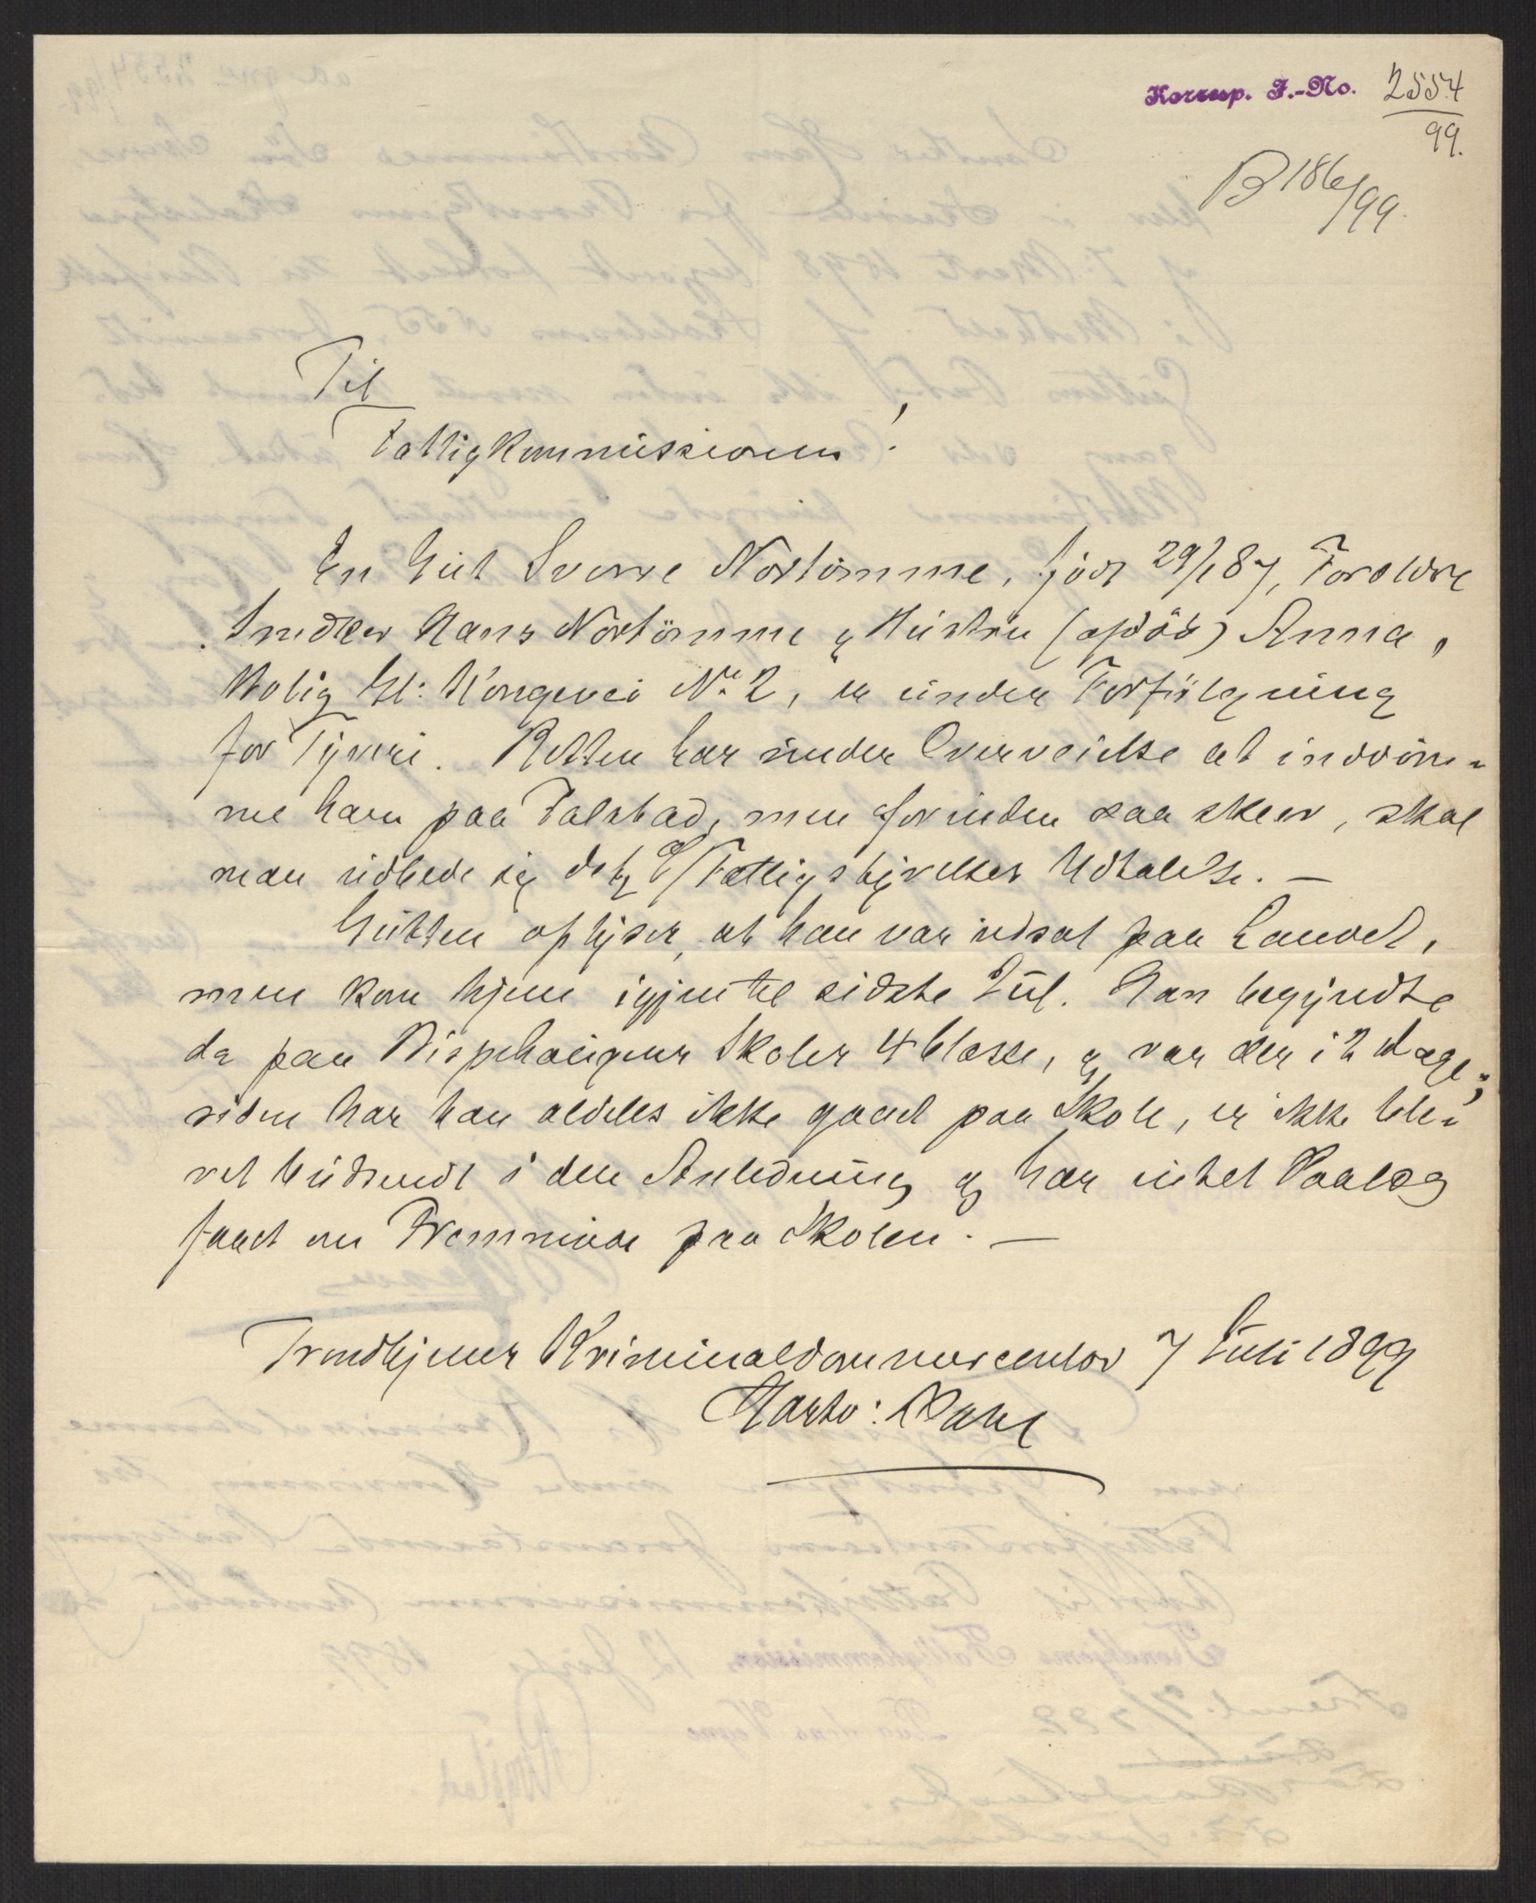 Korresp. J.-No. 2554
99.
B 186/99.
Til
Fattigkommissionen!
En Gut Sverre Nostömme, född 29/1 87, Foreldre
Snedker Hans Nostömme og Hustru (afdöd) Anna,
Bolig Gl: Kongevei No 2, er under Forfölgning
for Tyveri. Retten har under Overveielse at inddöm-
me ham paa Falstad, men forinden saa skeer, skal
man udbede sig Fattigstyrelses Udtalelse. —
Gutten oplyser, at han var udsat paa Landet,
men kom hjem igjen til sidste Jul. Han begyndte
da paa Bispehaugens Skoles 4 Classe, og var der i 2 Dage;
siden har han aldeles ikke gaaet paa Skole, er ikke ble-
vet budsendt i den Anledning og har intet Paalæg
faaet om Fremmøde paa Skolen. —
Trondhjems Kriminaldommercontor 7 Juli 1899
Hartv: Dahl